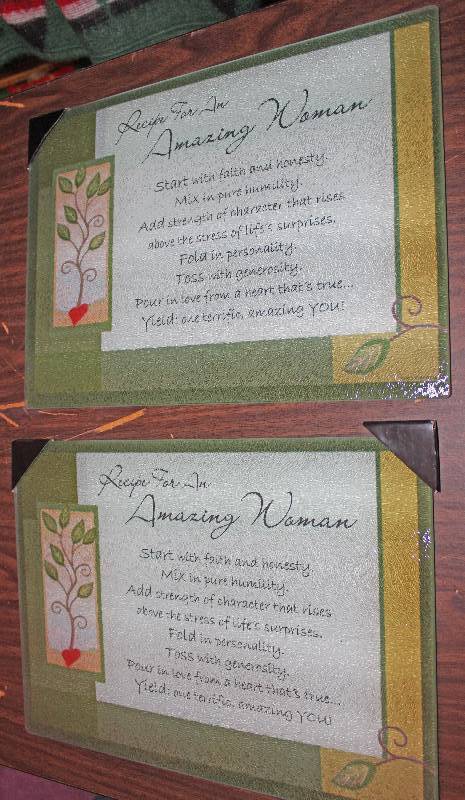 Recipe For An
Amazing Woman
Start with faith and honesty.
Mix in pure humility.
Add strength of character that rises
above the stress of life's surprises.
Fold in personality.
Toss with generosity.
Pour in love from a heart that's true...
Yield: one terrific, amazing YOU!
Recipe For An
Amazing Woman
Start with faith and honesty.
Mix in pure humility.
Add strength of character that rises
above the stress of life's surprises.
Fold in personality.
Toss with generosity.
Pour in love from a heart that's true...
Yield: one terrific, amazing YOU!